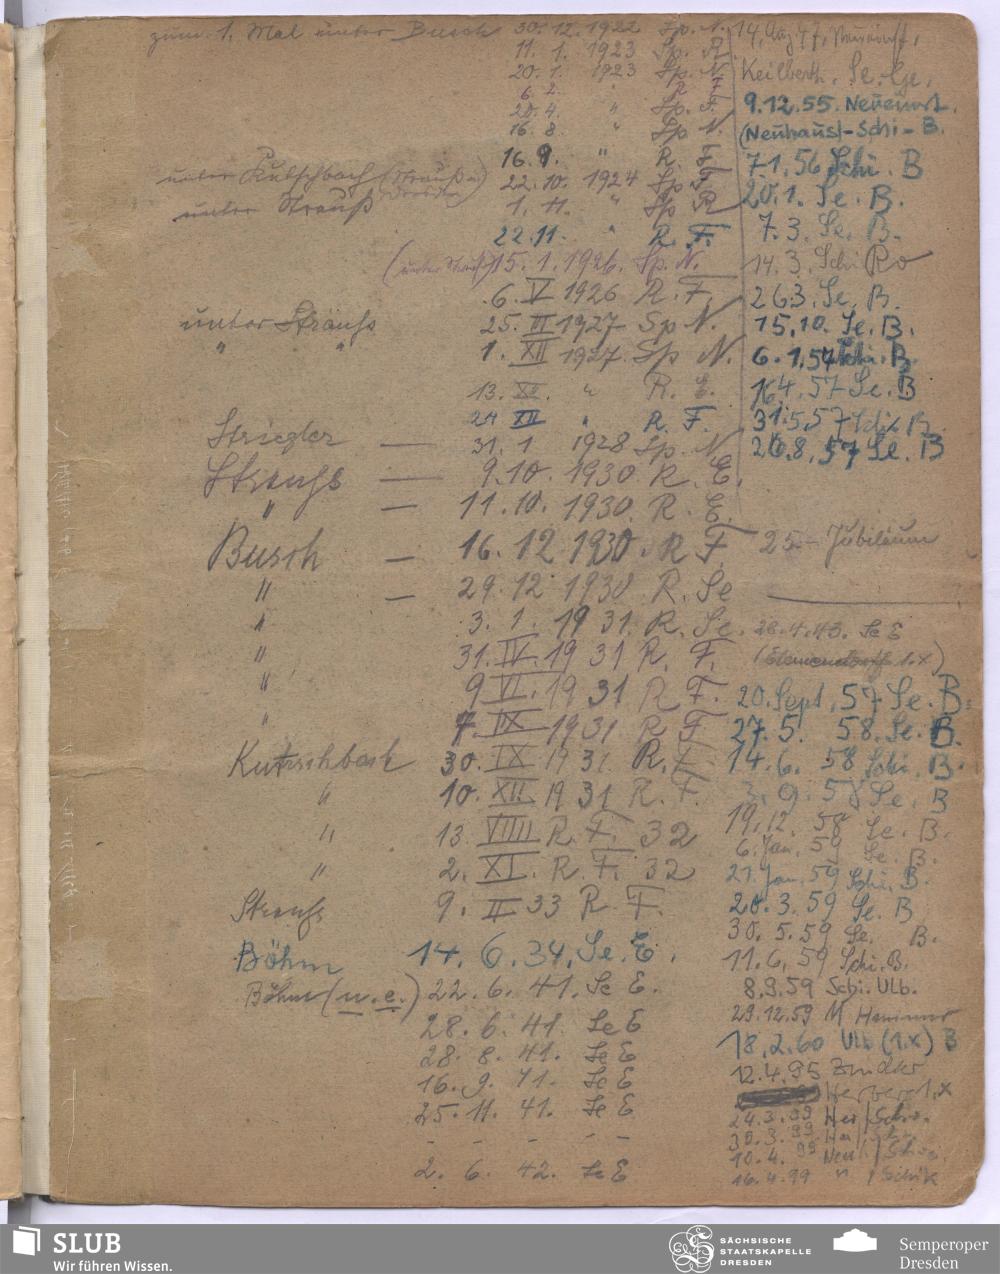 zum 1. Mal unter Busch 30. 12. 1922 Sp. N.
11. 1. 1923 Sp. R
20. 1. 1923 Sp. N
6. 2. " R F
20. 4. " Sp. F.
16. 8. " Sp N.
16. 9. " R. F
unter Kutzschbach (Strauß in Dresden) 22. 10. 1924 Sp F
unter Strauß 1. 11. " Sp R
22. 11. " R. F.
(unter Strauß) 15. 1. 1926. Sp. N.
6. V 1926 R. F.
unter Strauß 25. III 1927 Sp N.
" " 1. XII 1927 Sp N.
13. XII. " R. E.
24 XII " R. F.
Striegler — 31. 1 1928 Sp. N
Strauß — 9. 10. 1930 R. E.
" — 11. 10. 1930. R. E.
Busch — 16. 12 1930. R F
" — 29. 12. 1930 R. Se
" 3. 1. 1931. R. Se.
" 31. IV. 1931 R. F.
" 9 VI. 1931 R F.
" 7. IX 1931 R F
Kutzschbach 30. IX 1931 R. F.
" 10. XII. 1931 R. F.
" 13. VIIII R. F. 32
" 2. XI. R. F. 32
Strauß 9. II 33 R. F.
Böhm 14. 6. 34. Se. E.
Böhm (u. e.) 22. 6. 41. Se E.
28. 6. 41. Se E
28. 8. 41. Se E
16. 9. 41. Se E
25. 11. 41. Se E
- - - - -
2. 6. 42. Se E
14. Aug 47,
Keilberth. Se. Ge.
9. 12. 55. Neueinst.
(Neuhaus)-Schi-B.
7. 1. 56 Schi. B
20. 1. Se. B.
7. 3. Se. B.
14. 3. Schi Ro
26 3. Se. B.
15. 10. Se. B.
6. 1. 57 Schi. B.
16. 4. 57 Se. B
31. 5. 57 Schi B.
26. 8. 57 Se. B
25- Jubiläum
28. 4. 43. Se E
(Elmendorff 1. x)
20. Sept. 57 Se. B.
27. 5. 58. Se. B.
14. 6. 58 Schi. B.
3. 9. 58 Se. B
19. 12. 58 Se. B.
6. Jan. 59 Se. B.
21. Jan. 59 Schi. B.
20. 3. 59 Se. B
30. 5. 59 Se. B.
11. 6. 59 Schi. B.
8. 9. 59 Schi. Ulb.
29. 12. 59 M
18. 2. 60 Ulb (1. x) B
12. 4. 95
1. x
24. 3. 99 Her/Schi.
30. 3. 99
10. 4. 99
16. 4. 99 " / Schik
SLUB
Wir führen Wissen.
SÄCHSISCHE
STAATSKAPELLE
DRESDEN
Semperoper
Dresden